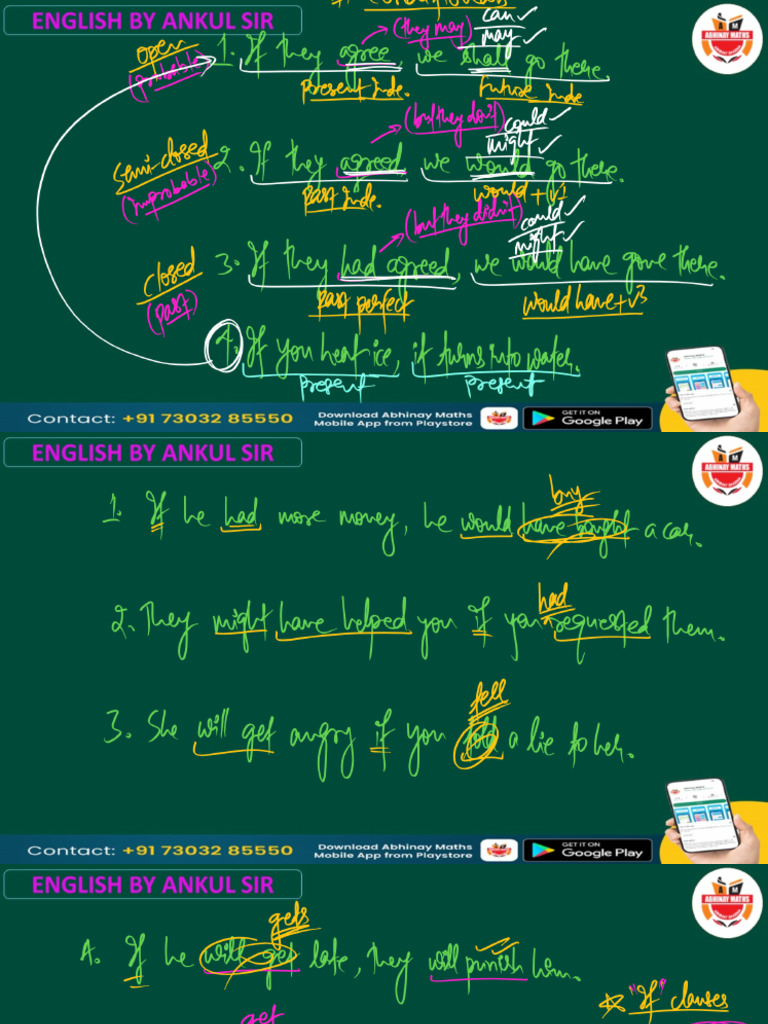 ENGLISH BY ANKUL SIR
ABHINAY MATHS
can ✓
(they may) may ✓
open 1. If they agree, we shall go there.
(probable) Present Inde. Future Inde
(but they don't) could ✓
might ✓
semi-closed 2. If they agreed we would go there.
(improbable) Past Inde. would + V1
(but they didn't) could ✓
might ✓
closed 3. If they had agreed, we would have gone there.
(past) past perfect would have + V3
4. If you heat ice, it turns into water.
present present
Contact: +91 73032 85550 Download Abhinay Maths Mobile App from Playstore GET IT ON Google Play
ENGLISH BY ANKUL SIR
ABHINAY MATHS
buy
1. If he had more money, he would have bought a car.
had
2. They might have helped you if you requested them.
tell
3. She will get angry if you told a lie to her.
Contact: +91 73032 85550 Download Abhinay Maths Mobile App from Playstore GET IT ON Google Play
ENGLISH BY ANKUL SIR
ABHINAY MATHS
gets
A. If he will get late, they will punish him.
"If" clauses
get